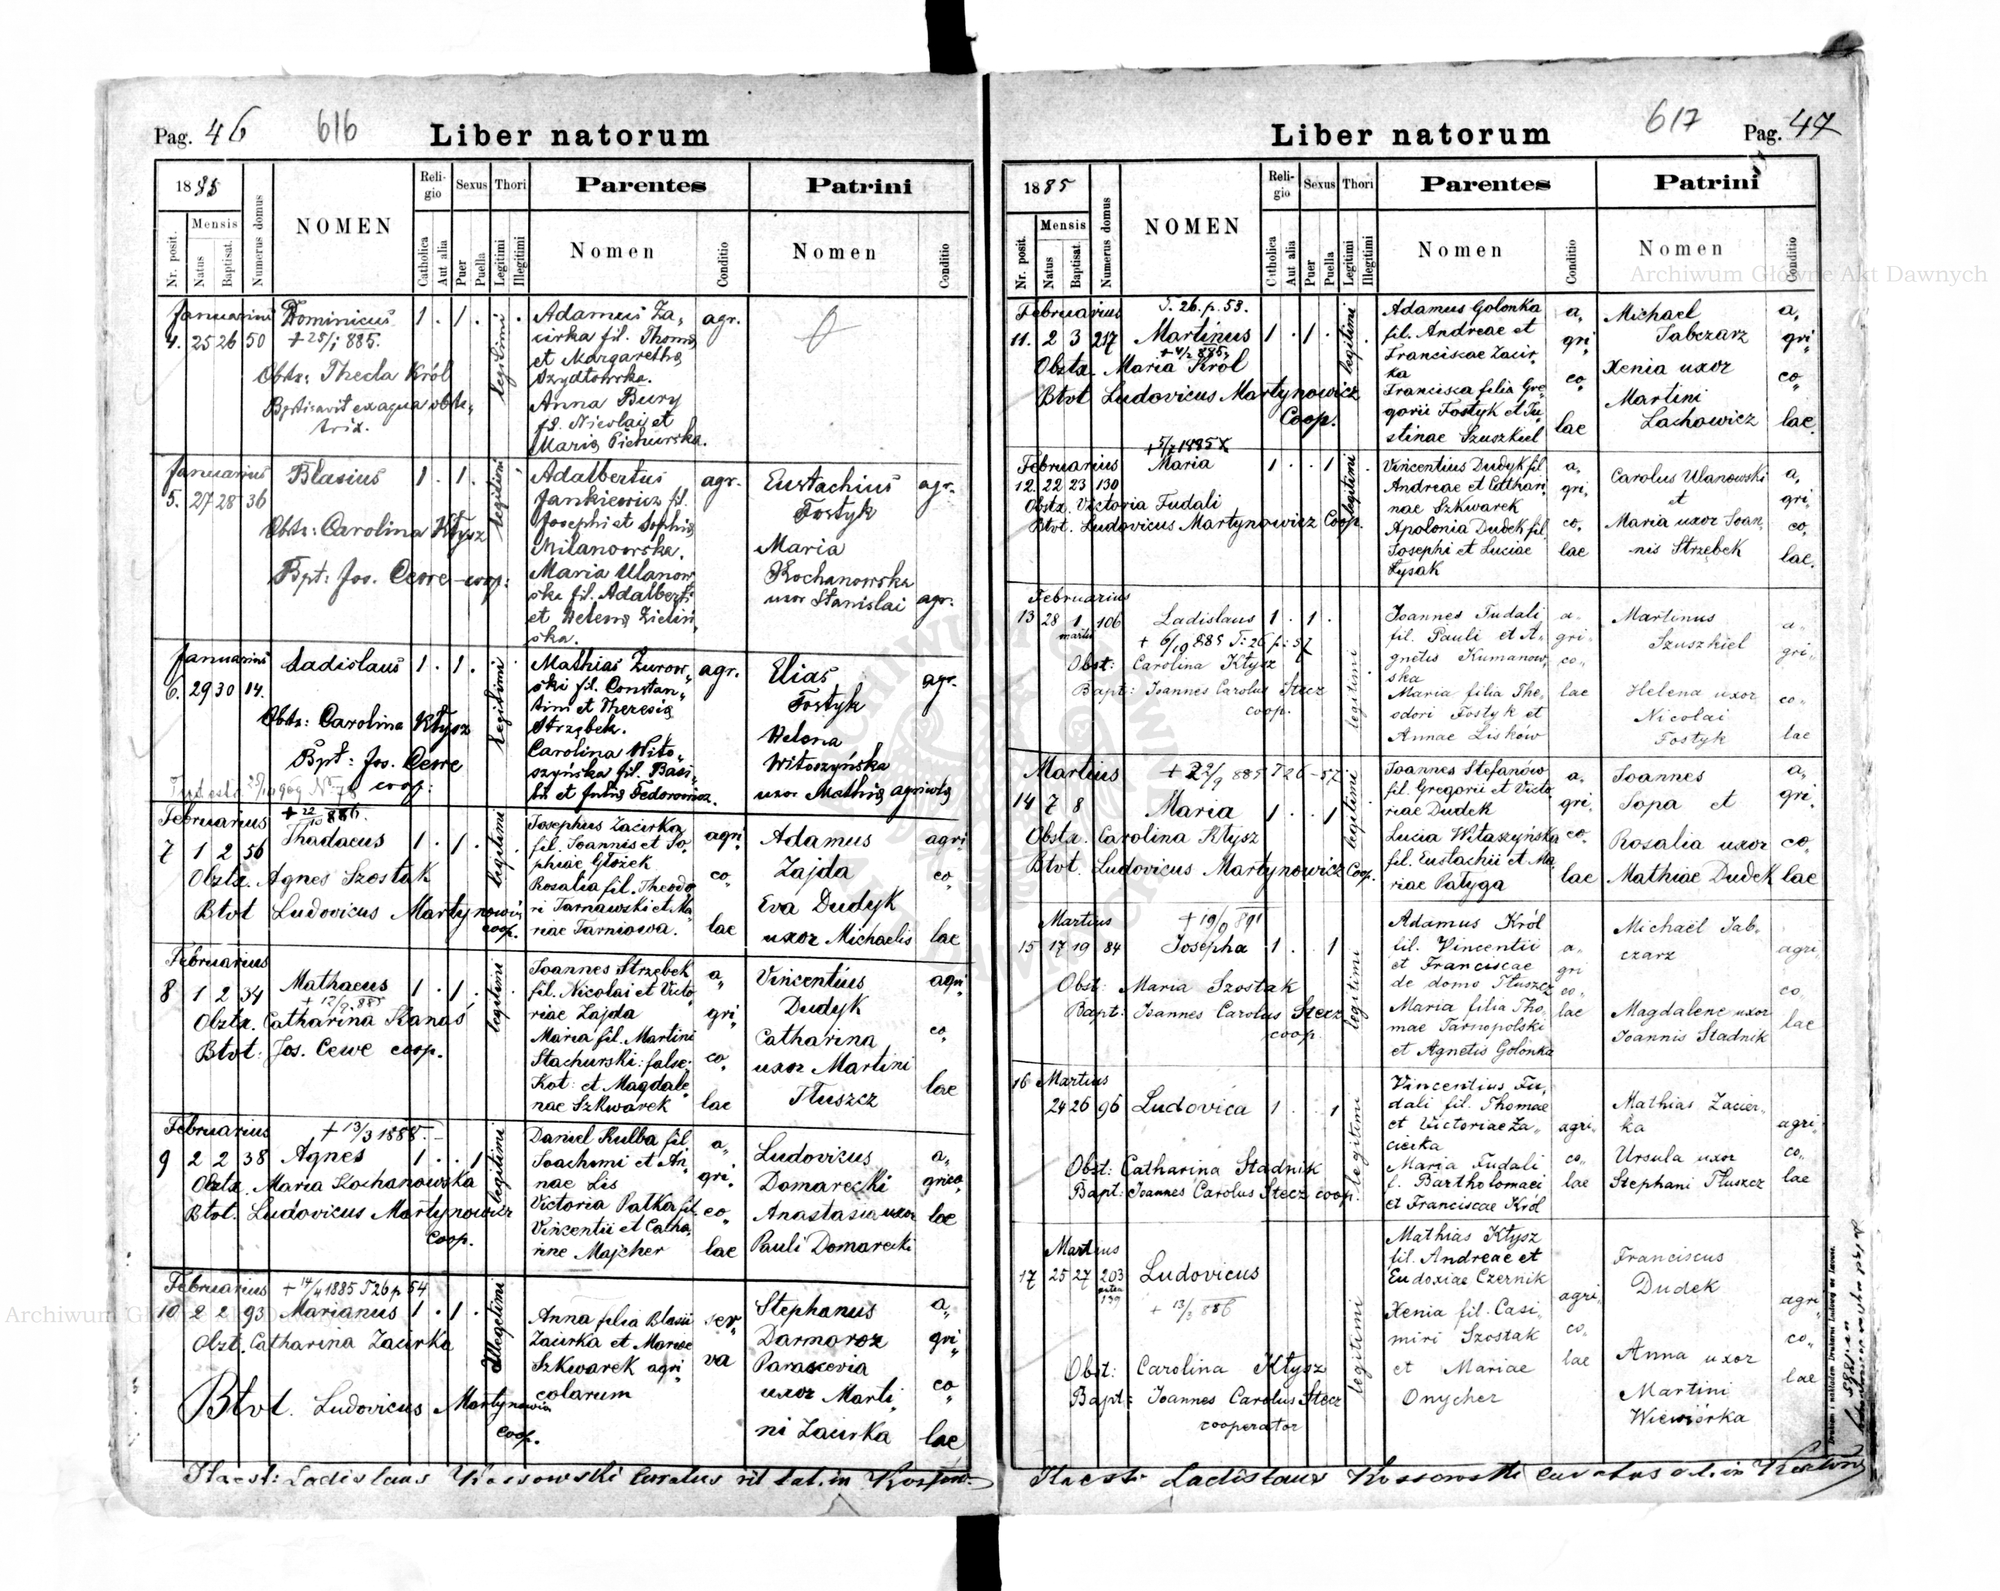 Pag. 46
616
Liber natorum
1885
Mensis
Nr. posit.
Natus
Baptisat.
Numerus domus
NOMEN
Religio
Catholica
Aut alia
Sexus
Puer
Puella
Thori
Legitimi
Illegitimi
Parentes
Nomen
Conditio
Patrini
Nomen
Conditio
Januarius
4. 25 26 50
Dominicus
+ 25/1 885.
1 . 1 .
legitimi
Obtx: Thecla Król
Bptisavit ex aqua obte-
trix.
Adamus Za-
cirka fil. Thomæ
et Margarethæ
Szydłowska.
Anna Bury
fil. Nicolai et
Mariæ Pichurska.
agr.
Januarius
5. 27 28 36
Blasius
1 . 1 .
legitimi
Obtx: Carolina Kłysz
Bpt: Jos. Cewe coop:
Adalbertus
Jankiewicz fil.
Josephi et Sophiæ
Milanowska.
Maria Ulanow
ska fil. Adalberti
et Helenæ Zieliń
ska.
agr.
Eustachius
Fostyk
Maria
Kochanowska
uxor Stanislai
agr.
agr.
Januarius
6. 29 30 14.
Ladislaus
1 . 1 .
legitimi
Obtx: Carolina Kłysz
Bpt: Jos. Cewe
coop:
Mathias Zurow-
ski fil. Constan-
tini et Theresiæ
Strzębek.
Carolina Wito-
szyńska fil. Basi-
lii et Juliæ Fedorowicz.
agr.
Elias
Fostyk
Helena
Witoszyńska
uxor Mathiæ agricolæ
agr.
Februarius
+ 22/10 886.
7 1 2 56
Thadaeus
1 . 1 .
legitimi
Obztx. Agnes Szostak
Btvt Ludovicus Martynowicz
coop.
Josephus Zacirka
fil. Joannis et So-
phiae Głożek
Rosalia fil. Theodo-
ri Tarnawski et Ma-
riae Tarniowa.
agri-
co-
lae
Adamus
Zajda
Eva Dudyk
uxor Michaelis
agri
co-
lae
Februarius
8 1 2 34
Mathaeus
+ 12/9 885
1 . 1 .
legitimi
Obztx. Catharina Kanaś
Btvt: Jos. Cewe coop.
Joannes Strzębek
fil. Nicolai et Victo-
riae Zajda
Maria fil. Martini
Stachurski: false:
Kot: et Magdale
nae Szkwarek
a-
gri-
co-
lae
Vincentius
Dudyk
Catharina
uxor Martini
Tłuszcz
agri
co-
lae
Februarius
+ 13/3 1888.
9 2 2 38
Agnes
1 . . 1
legitimi
Obztx. Maria Kochanowska
Btvt. Ludovicus Martynowicz
coop.
Daniel Kulba fil
Joachimi et An-
nae Lis
Victoria Patka fil.
Vincentii et Catha-
rine Majcher
a-
gri-
co-
lae
Ludovicus
Domarecki
Anastasia uxor
Pauli Domarecki
a-
grico-
lae
Februarius
+ 14/4 1885 T 26 p 54
10 2 2 93
Marianus
1 . 1 .
Illegitimi
Obzt. Catharina Zacirka
Btvt. Ludovicus Martynowicz
coop.
Anna filia Blasii
Zacirka et Mariae
Szkwarek agri
colarum
ser-
va
Stephanus
Darmoroz
Parascevia
uxor Marti-
ni Zacirka
a-
gri-
co-
lae
Ladislaus Kossowski curatus rit lat. in
617
Pag. 47
Liber natorum
1885
Mensis
Nr. posit.
Natus
Baptisat.
Numerus domus
NOMEN
Religio
Catholica
Aut alia
Sexus
Puer
Puella
Thori
Legitimi
Illegitimi
Parentes
Nomen
Conditio
Patrini
Nomen
Conditio
Februarius
T. 26. p. 53.
11. 2 3 217
Martinus
+ 4/2 885.
1 . 1 .
legitimi
Obztx. Maria Król
Btvt Ludovicus Martynowicz
Coop.
Adamus Golonka
fil. Andreae et
Franciscae Zacir-
ka
Francisca filia Gre-
gorii Fostyk et Ju-
stinae Szuszkiel
a-
gri-
co-
lae
Michael
Jabczarz
Xenia uxor
Martini
Lachowicz
a-
gri-
co-
lae.
Februarius
12. 22 23 130
Maria
1 . . 1
legitimi
Obstx. Victoria Fudali
Btvt. Ludovicus Martynowicz Coop.
Vincentius Dudyk fil
Andreae et Cathari-
nae Szkwarek
Apolonia Dudek fil
Josephi et Luciae
Łysak
a-
gri-
co-
lae
Carolus Ulanowski
et
Maria uxor Joan-
nis Strzębek
a-
gri-
co-
lae.
Februarius
13 28 1 106
martii
Ladislaus
+ 6/10 885 T: 26 p: 57
1 . 1 .
legitimi
Obst: Carolina Kłysz
Bapt: Joannes Carolus Stecz
coop.
Joannes Fudali
fil. Pauli et A-
gnetis Kumanow
ska
Maria filia The-
odori Fostyk et
Annae Lisków
a-
gri-
co-
lae
Martinus
Szuszkiel
Helena uxor
Nicolai
Fostyk
a-
gri-
co-
lae
Martius
14 7 8
Maria
1 . . 1
legitimi
Obstx. Carolina Kłysz
Btvt. Ludovicus Martynowicz Coop.
Joannes Stefanów
fil. Gregorii et Victo
riae Dudek
Lucia Witaszyńska
fil. Eustachii et Ma
riae Patyga
a-
gri-
co-
lae
Joannes
Sopa et
Rosalia uxor
Mathiae Dudek
a-
gri-
co-
lae
Martius
+ 19/9 891
15 17 19 84
Josepha
1 . 1
legitimi
Obst: Maria Szostak
Bapt: Joannes Carolus Stecz
coop
Adamus Król
fil. Vincentii
et Franciscae
de domo Tłuszcz
Maria filia Tho-
mae Tarnopolski
et Agnetis Golonka
a-
gri
co-
lae
Michaël Jab-
czarz
Magdalene uxor
Joannis Stadnik
agri-
co-
lae
16 Martius
24 26 96
Ludovica
1 . . 1
legitimi
Obst: Catharina Stadnik
Bapt: Joannes Carolus Stecz coop.
Vincentius Fu-
dali fil. Thomae
et Victoriae Za-
cirka
Maria Fudali
f. Bartholomaei
et Franciscae Król
agri-
co-
lae
Mathias Zacier-
ka
Ursula uxor
Stephani Tłuszcz
agri-
co-
lae
Martius
17 25 27 203
139
Ludovicus
+ 13/3 886
legitimi
Obst: Carolina Kłysz
Bapt: Joannes Carolus Stecz
cooperator
Mathias Kłysz
fil. Andreae et
Eudoxiae Czernik
Xenia fil. Casi-
miri Szostak
et Mariae
Onycher
agri-
co-
lae
Franciscus
Dudek
Anna uxor
Martini
Wiewiórka
agri-
co-
lae
Ladislaus Kossowski curatus r. l. in
Archiwum Główne Akt Dawnych